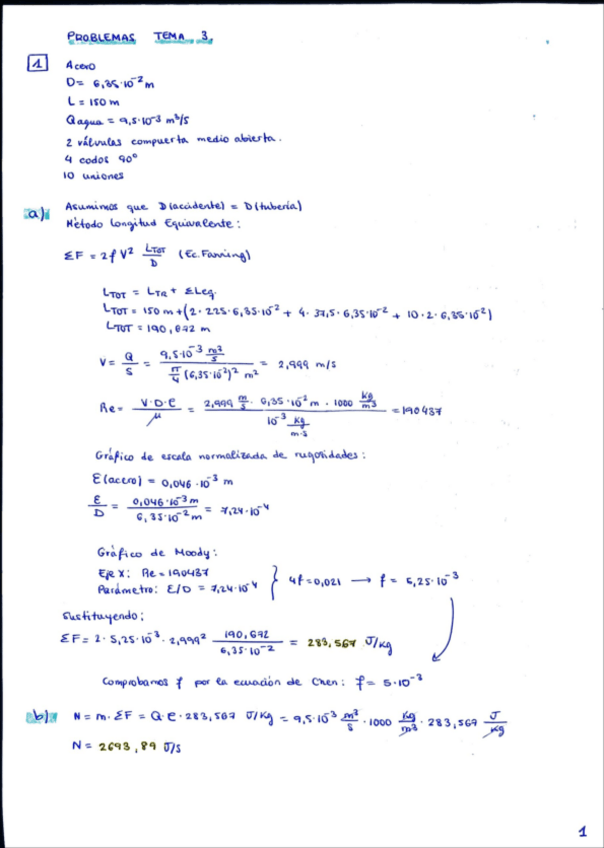 PROBLEMAS TEMA 3.
1 Acero
D = 6,35·10⁻² m
L = 150 m
Qagua = 9,5·10⁻³ m³/s
2 válvulas compuerta medio abierta.
4 codos 90°
10 uniones
a) Asumimos que D(accidente) = D(tubería)
Método Longitud Equivalente:
ΣF = 2f V² LTOT/D (Ec. Fanning)
LTOT = LTR + ΣLeq.
LTOT = 150 m + (2·225·6,35·10⁻² + 4·37,5·6,35·10⁻² + 10·2·6,35·10⁻²)
LTOT = 190,692 m
V = Q/S = 9,5·10⁻³ m³/s / π/4 (6,35·10⁻²)² m² = 2,999 m/s
Re = V·D·ρ/μ = 2,999 m/s · 6,35·10⁻² m · 1000 kg/m³ / 10⁻³ kg/m·s = 190437
Gráfico de escala normalizada de rugosidades:
ε(acero) = 0,046·10⁻³ m
ε/D = 0,046·10⁻³ m / 6,35·10⁻² m = 7,24·10⁻⁴
Gráfico de Moody:
Eje X: Re = 190437
Parámetro: ε/D = 7,24·10⁻⁴ } 4f = 0,021 → f = 5,25·10⁻³
Sustituyendo:
ΣF = 2·5,25·10⁻³·2,999² 190,692/6,35·10⁻² = 283,567 J/kg
Comprobamos f por la ecuación de Chen: f = 5·10⁻³
b) N = m·ΣF = Q·ρ·283,567 J/kg = 9,5·10⁻³ m³/s · 1000 kg/m³ · 283,567 J/kg
N = 2693,89 J/s
1